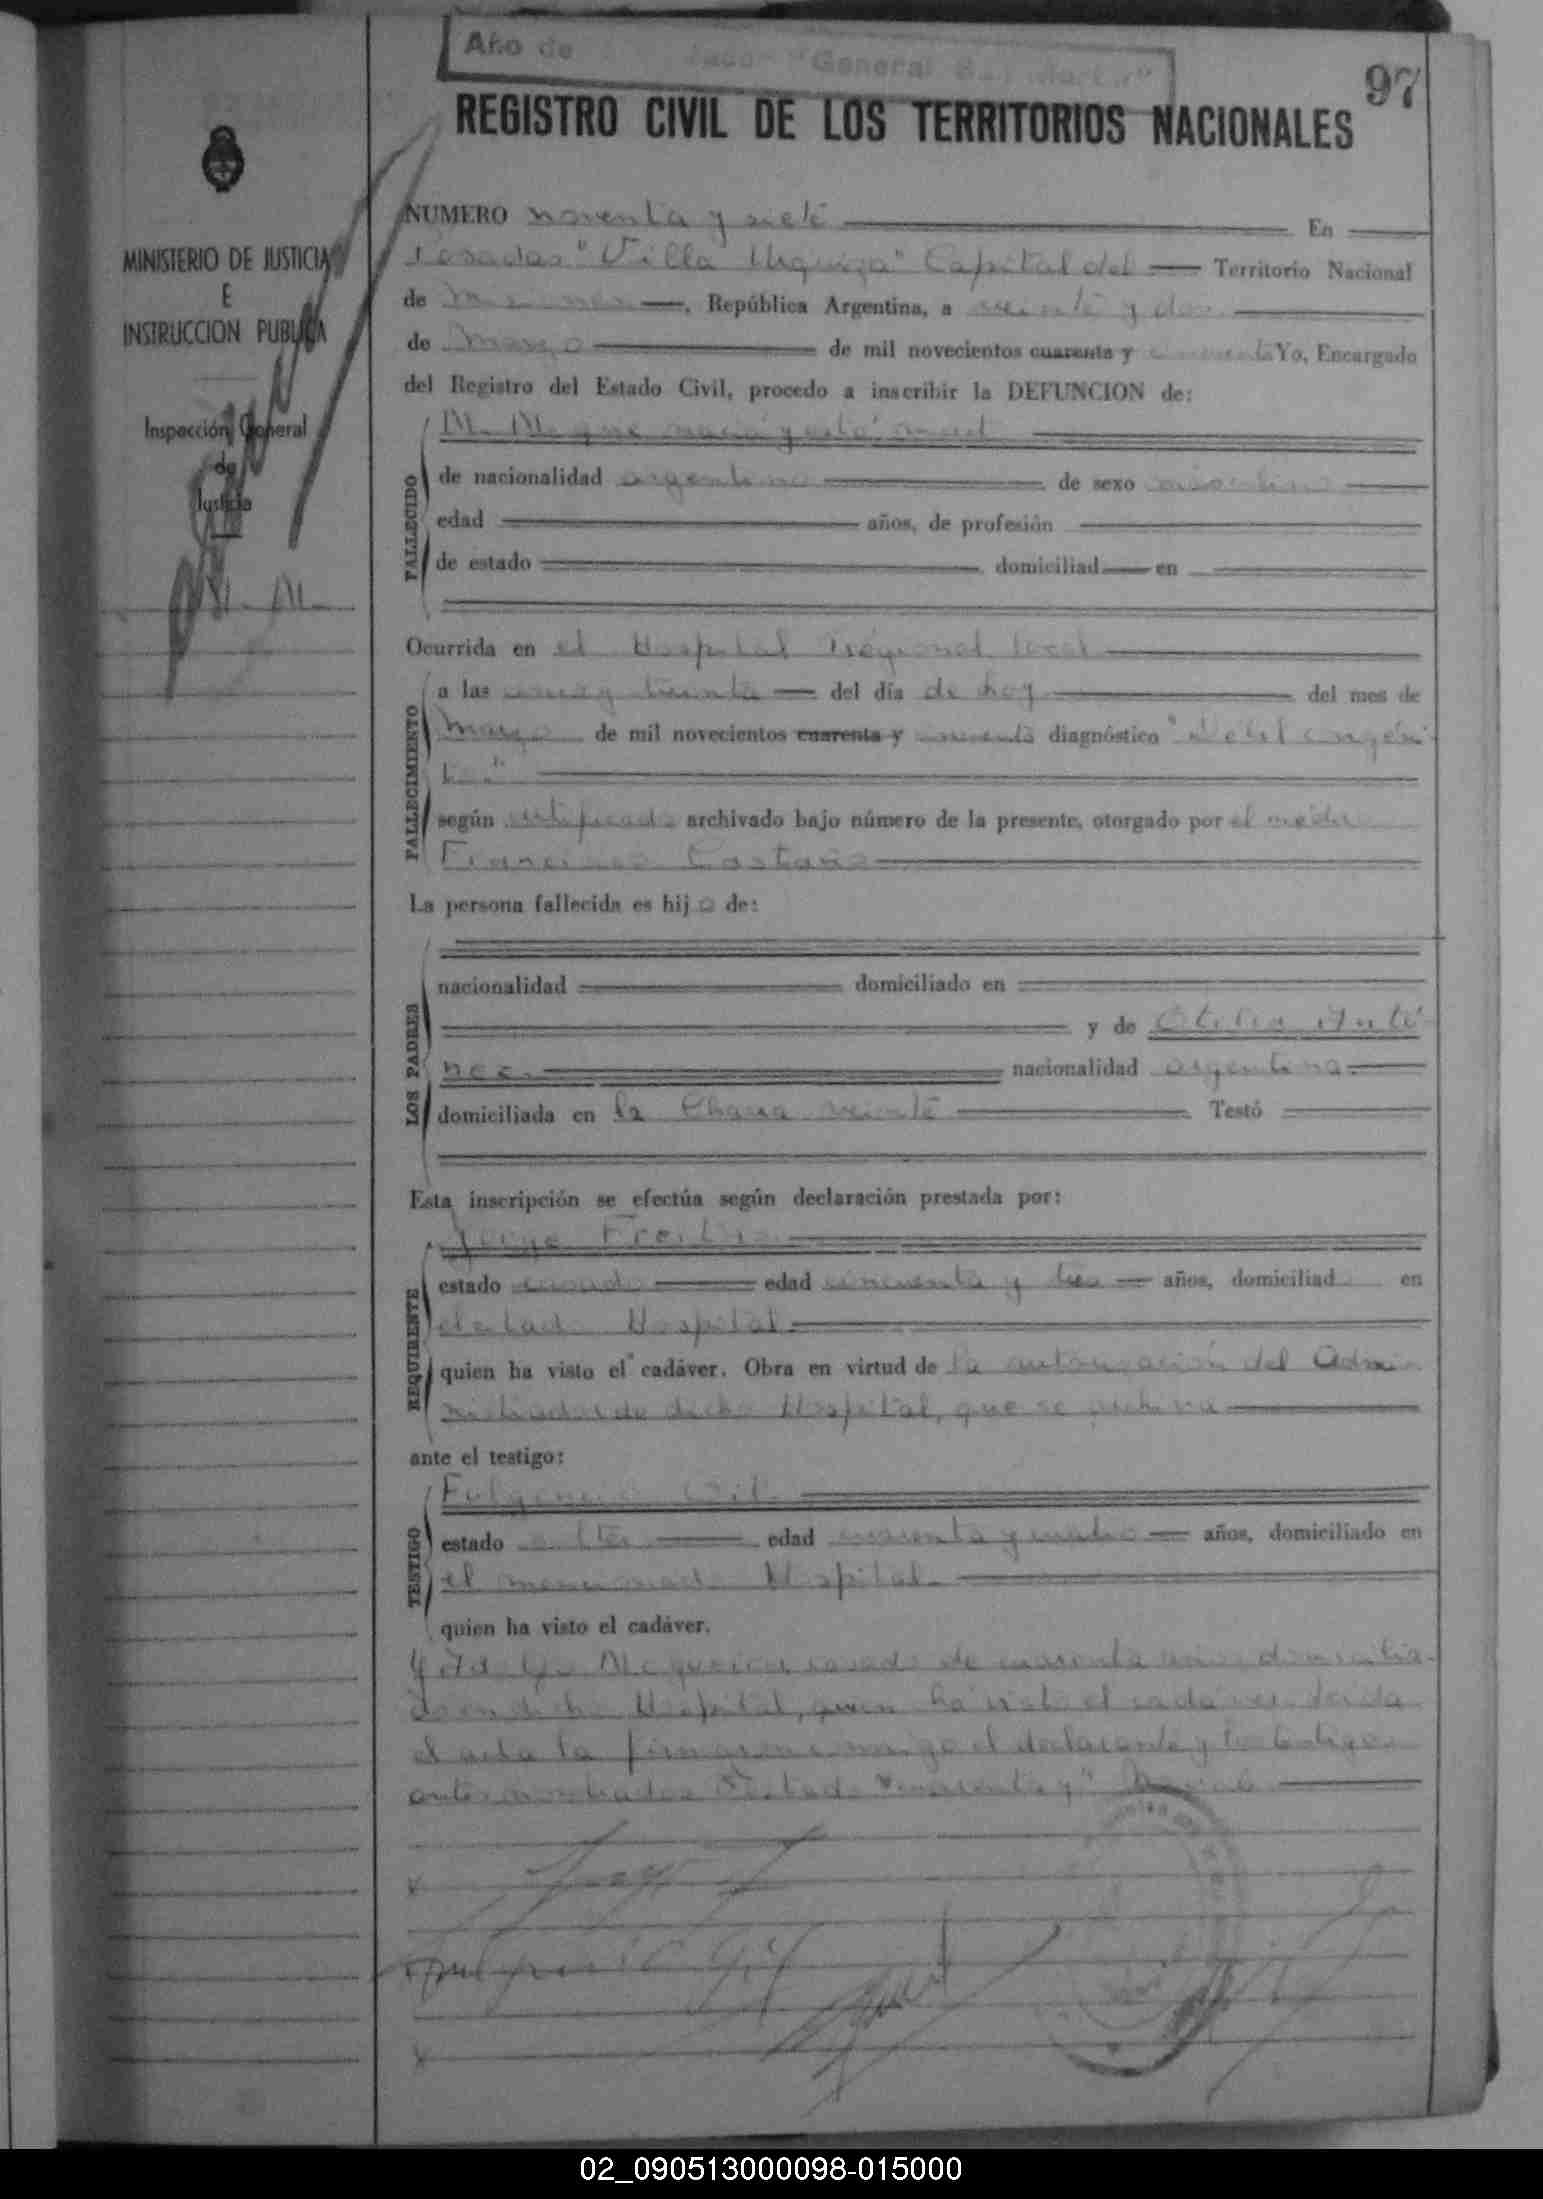 Año de "General San Martín"
97
REGISTRO CIVIL DE LOS TERRITORIOS NACIONALES
MINISTERIO DE JUSTICIA
E
INSTRUCCION PUBLICA
Inspección General
de
Justicia
N. N.
NUMERO noventa y siete En
Posadas "Villa Urquiza" Capital del Territorio Nacional
de Misiones, República Argentina, a veinte y dos
de Marzo de mil novecientos cuarenta y cincuenta Yo, Encargado
del Registro del Estado Civil, procedo a inscribir la DEFUNCION de:
FALLECIDO
N. N. que nació y está muerto
de nacionalidad argentina de sexo masculino
edad años, de profesión
de estado domiciliad en
Ocurrida en el Hospital Regional local
FALLECIMIENTO
a las y treinta del día de hoy del mes de
Marzo de mil novecientos cuarenta y cincuenta diagnóstico
según certificado archivado bajo número de la presente, otorgado por el médico
Francisco Castaño
La persona fallecida es hijo de:
LOS PADRES
nacionalidad domiciliado en
y de Otilia Anté
nez. nacionalidad argentina.
domiciliada en la Chacra veinte Testó
Esta inscripción se efectúa según declaración prestada por:
REQUIRENTE
Jorge
estado casado edad cincuenta y tres años, domiciliado en
el citado Hospital.
quien ha visto el cadáver. Obra en virtud de la autorización del Admi
nistrador de dicho Hospital, que se archiva
ante el testigo:
TESTIGO
Fulgencio Gil
estado soltero edad cuarenta y cuatro años, domiciliado en
el mencionado Hospital.
quien ha visto el cadáver.
casado de cuarenta años domicilia
do en dicho Hospital, quien ha visto el cadáver. Leida
el acta la firmaron conmigo el declarante y los testigos
antes nombrados Testado "cuarenta y" No vale
Fulgencio Gil
02_090513000098-015000